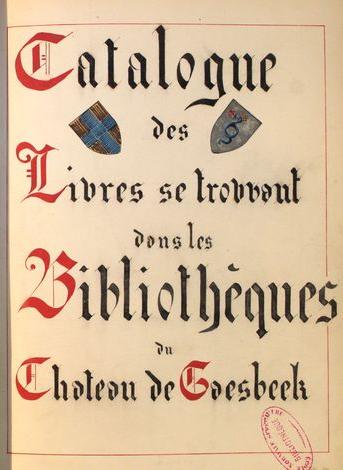 Catalogue
des
Livres se trouvant
dans les
Bibliothèques
du
Chateau de Gaesbeek
BIBLIOTHEQUE